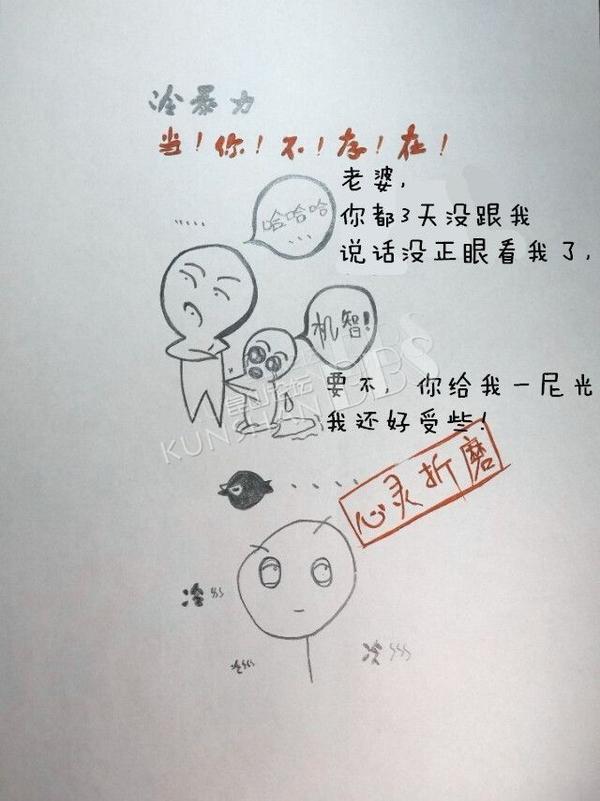 冷暴力
当!你!不!存!在!
老婆,
你都3天没跟我
说话没正眼看我了,
哈哈哈
...
机智!
要不, 你给我一尼光
我还好受些!
昆山论坛
KUNSHAN BBS
心灵折磨
冷
冷
冷